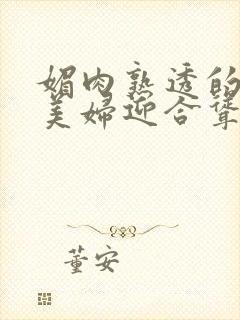 媚肉熟透的
美妇迎合耸
董安